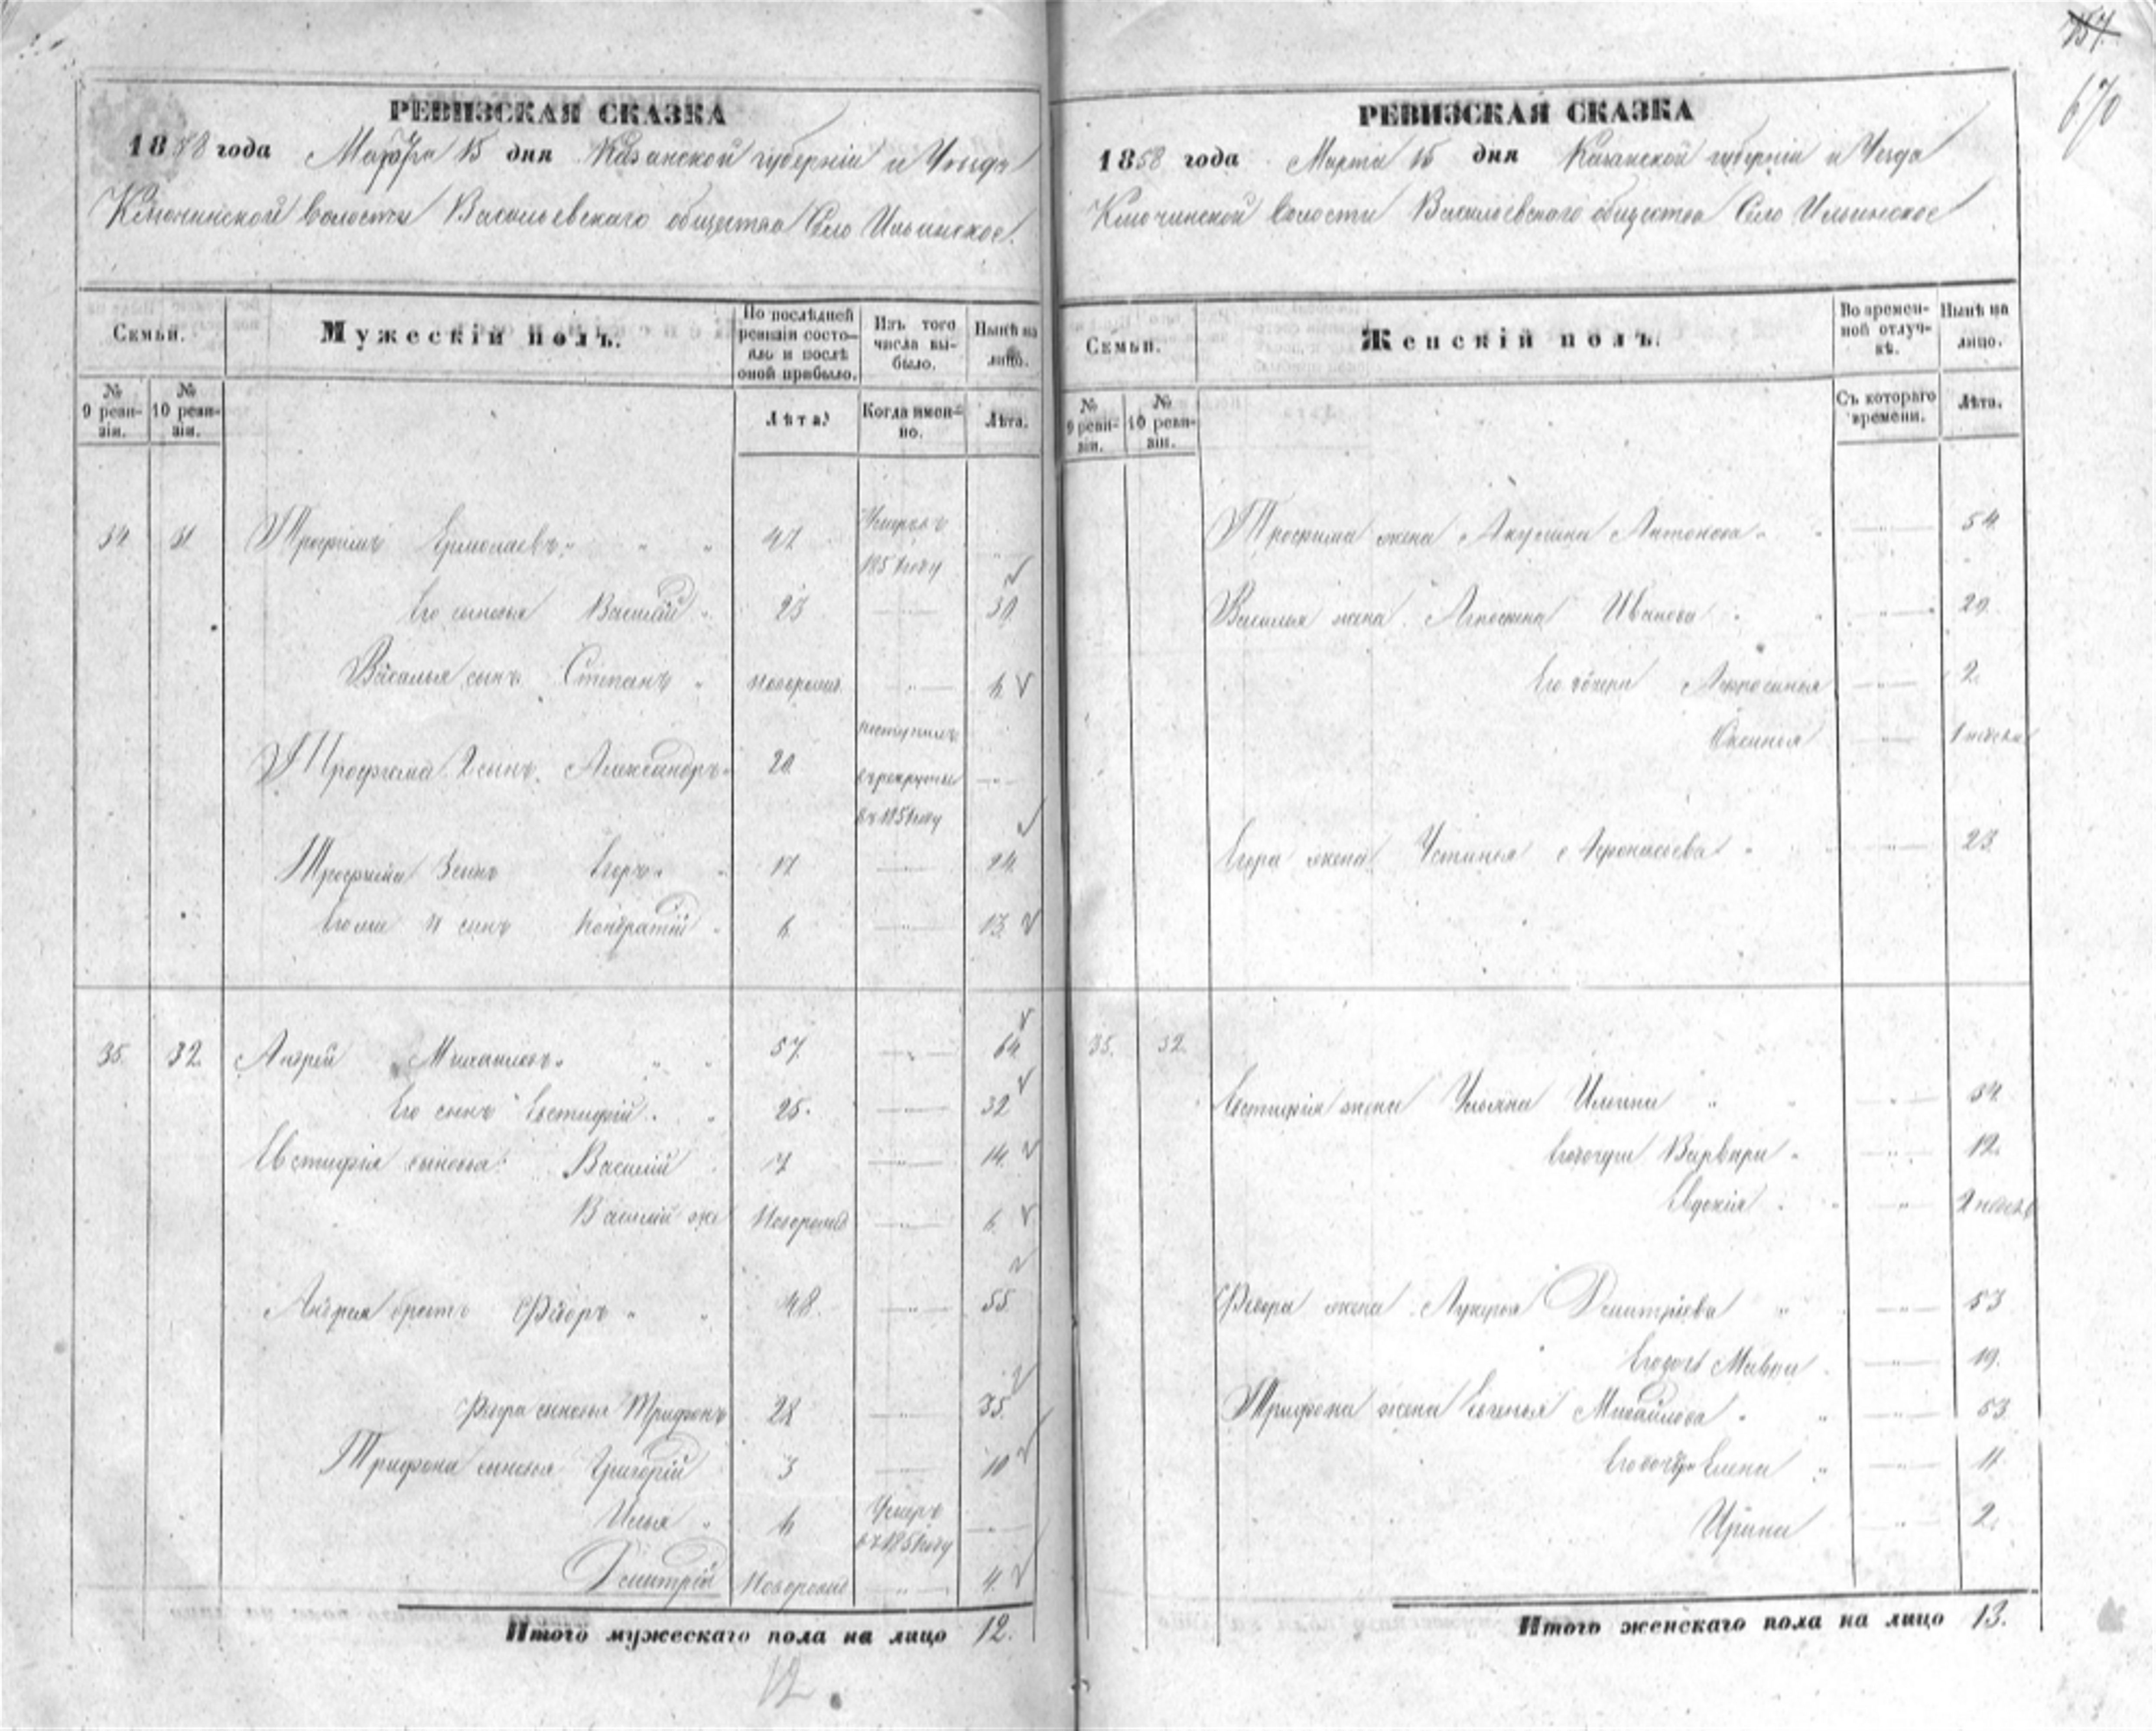 157.
670
РЕВИЗСКАЯ СКАЗКА
1858 года Марта 15 дня Казанской губерніи и Уѣзда
Ключинской Волости Васильевскаго общества Село Ильинское.
Семьи.
Мужескій полъ.
По послѣдней ревизіи состояло и послѣ оной прибыло.
Изъ того числа выбыло.
Нынѣ на лицо.
№ 9 ревизіи.
№ 10 ревизіи.
Лѣта.
Когда именно.
Лѣта.
34 31 Трофимъ Ермолаевъ 47 Умеръ въ 1851 году
Его сыновья Василій 23 30
Василья сынъ Степанъ новорожд. 6
Трофима 2 сынъ Александръ 20 поступилъ въ рекруты въ 1851 году
Трофима 3 сынъ Егоръ 17 24
Его же 4 сынъ Кондратій 6 13
35 32 Андрей Михайловъ 57 64
Его сынъ Евстифій 25 32
Евстифія сыновья Василій 7 14
Василій же Новорожд 6
Андрея братъ Ѳедоръ 48 55
Ѳедора сыновья Трифонъ 28 35
Трифона сыновья Григорій 3 10
Илья Умеръ въ 1851 году
Дмитрій Новорожд 4
Итого мужескаго пола на лицо 12.
12
РЕВИЗСКАЯ СКАЗКА
1858 года Марта 15 дня Казанской губерніи и Уѣзда
Ключинской Волости Васильевскаго общества Село Ильинское
Семьи.
Женскій полъ.
Во временной отлучкѣ.
Нынѣ на лицо.
№ 9 ревизіи.
№ 10 ревизіи.
Съ котораго времени.
Лѣта.
Трофима жена Акулина Антонова 54
Василья жена Иванова 29
Его дочери Афросинья 2
Оксинья
Егора жена Устинья Афонасьева 23
35. 32. Евстифія жена Ульяна Ильина 34
Его дочери Варвара 12
Евдокія 2 недѣль
Ѳедора жена Лукерья Дмитріева 53
Его дочь Мавра 19
Трифона жена Евгенья Михайлова 33
Его дочери Елена 11
Ирина 2
Итого женскаго пола на лицо 13.